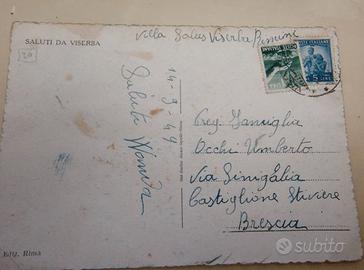 Villa Salus Viserba Rimini
SALUTI DA VISERBA
20
14-9-49
Saluti Wanda
POSTE ITALIANE
5
LIRE
Preg. Famiglia
Occhi Umberto
Via Sinigalia
Castiglione Stiviere
Brescia
Ediz. Rima
subito